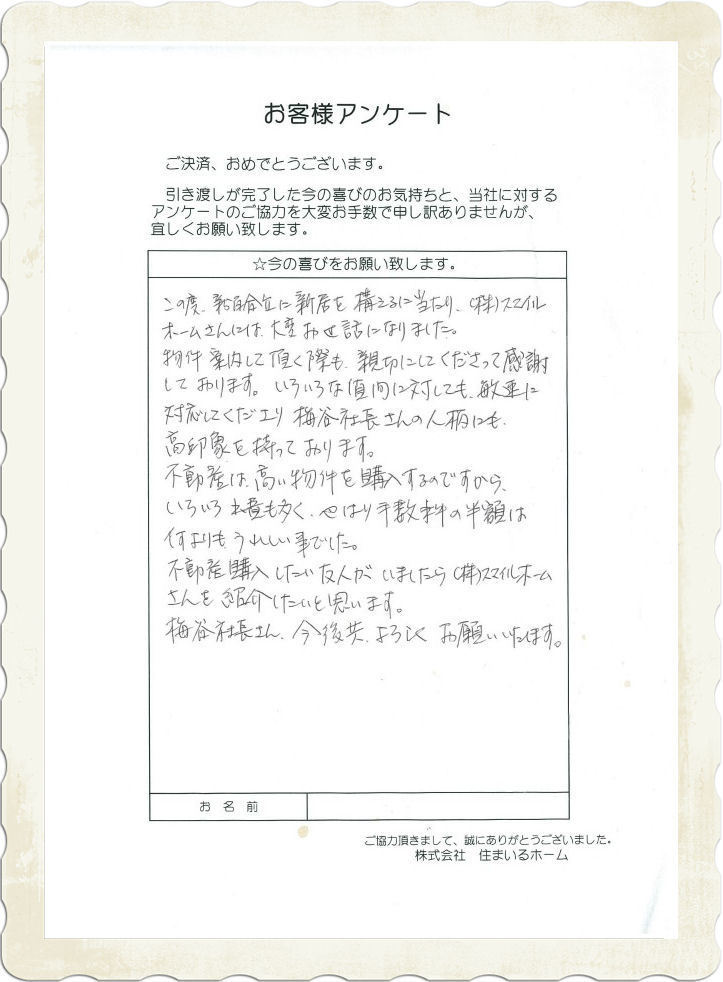 お客様アンケート
ご決済、おめでとうございます。
引き渡しが完了した今の喜びのお気持ちと、当社に対する
アンケートのご協力を大変お手数で申し訳ありませんが、
宜しくお願い致します。
☆今の喜びをお願い致します。
この度、新百合丘に新居を構えるに当たり、(株)スマイル
ホームさんには大変お世話になりました。
物件案内して頂く際も、親切にしてくださって感謝
しております。いろいろな質問に対しても、敏速に
対応してくださり 梅谷社長さんの人柄にも、
高印象を持っております。
不動産は、高い物件を購入するのですから、
いろいろ も多く、やはり手数料の半額は
何よりもうれしい事でした。
不動産購入したい友人がいましたら(株)スマイルホーム
さんを紹介したいと思います。
梅谷社長さん、今後共、よろしくお願いいたします。
お名前
ご協力頂きまして、誠にありがとうございました。
株式会社 住まいるホーム